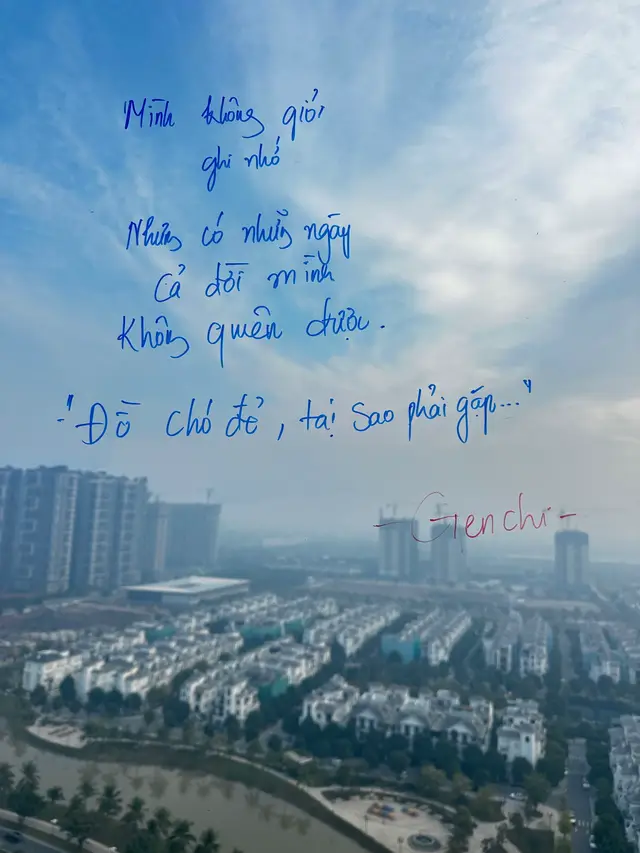 Mình không giỏi
ghi nhớ
Nhưng có những ngày
Cả đời mình
không quên được.
- "Đồ chó đẻ, tại sao phải gặp..."
- Genchi -